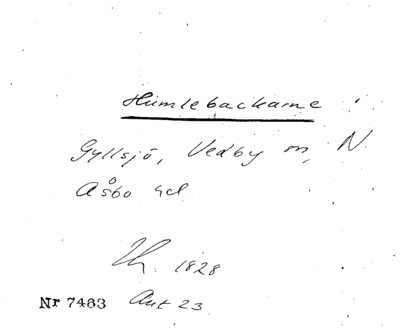 Humlebackarne
Gyllsjö, Vedby sn, N.
Åsbo hd
1828
Nr 7463 Aut 23